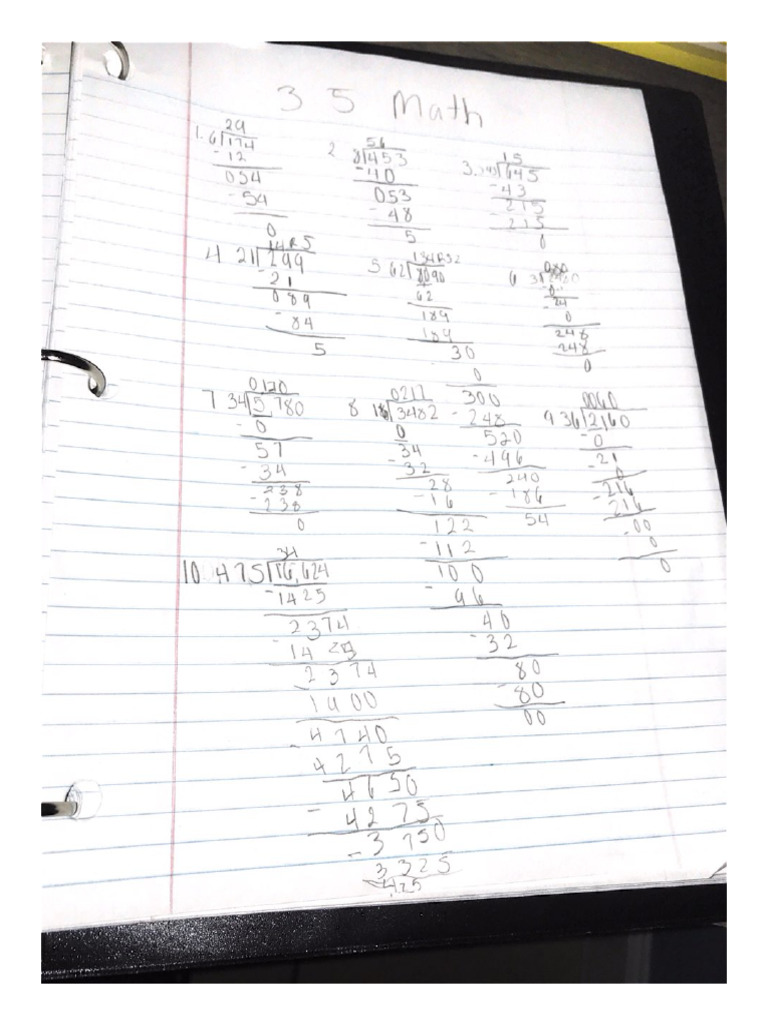 35 Math
1. 29
6)174
-12
054
-54
0
2 56
8)453
-40
053
-48
5
3. 15
)645
-43
215
-215
0
4 14R5
21)299
-21
089
-84
5
5 134R32
62)8090
62
189
189
30
0
300
-248
520
-496
240
-186
54
6 080
31)2480
0
-24
0
248
248
0
7 0170
34)5,780
-0
57
-34
238
-238
0
8 0217
16)3482
0
-34
-32
28
-16
122
-112
100
-96
40
-32
80
-80
00
9 0060
36)2160
-0
-21
0
-216
216
-00
0
0
10. 34
475)16,624
-1425
2374
2374
1900
4740
-4275
4650
-4275
3750
-3325
425